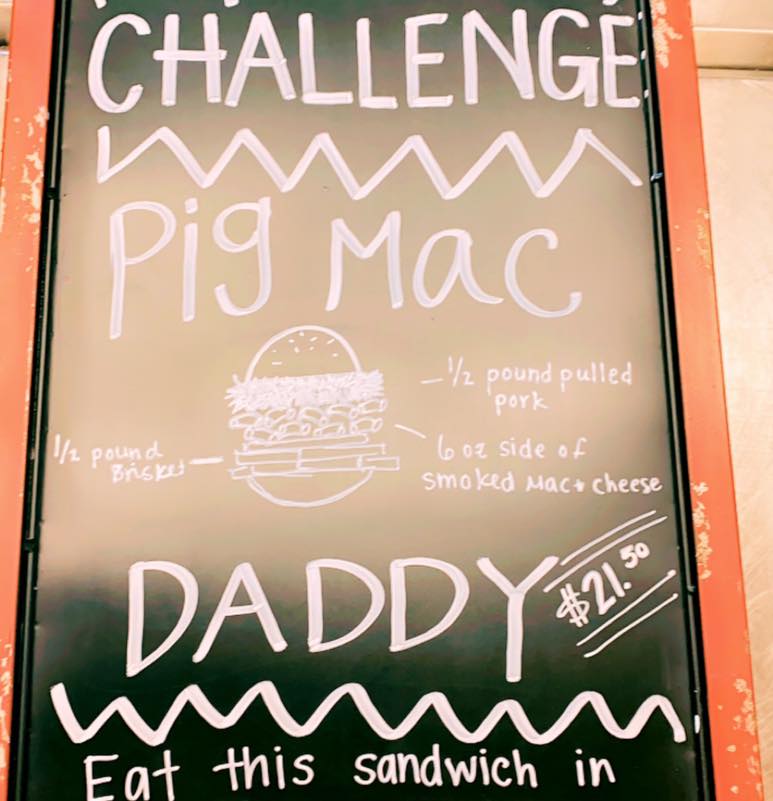 CHALLENGE
Pig Mac
1/2 pound pulled
pork
6 oz side of
smoked Mac + cheese
1/2 pound
Brisket
DADDY
$21.50
Eat this sandwich in